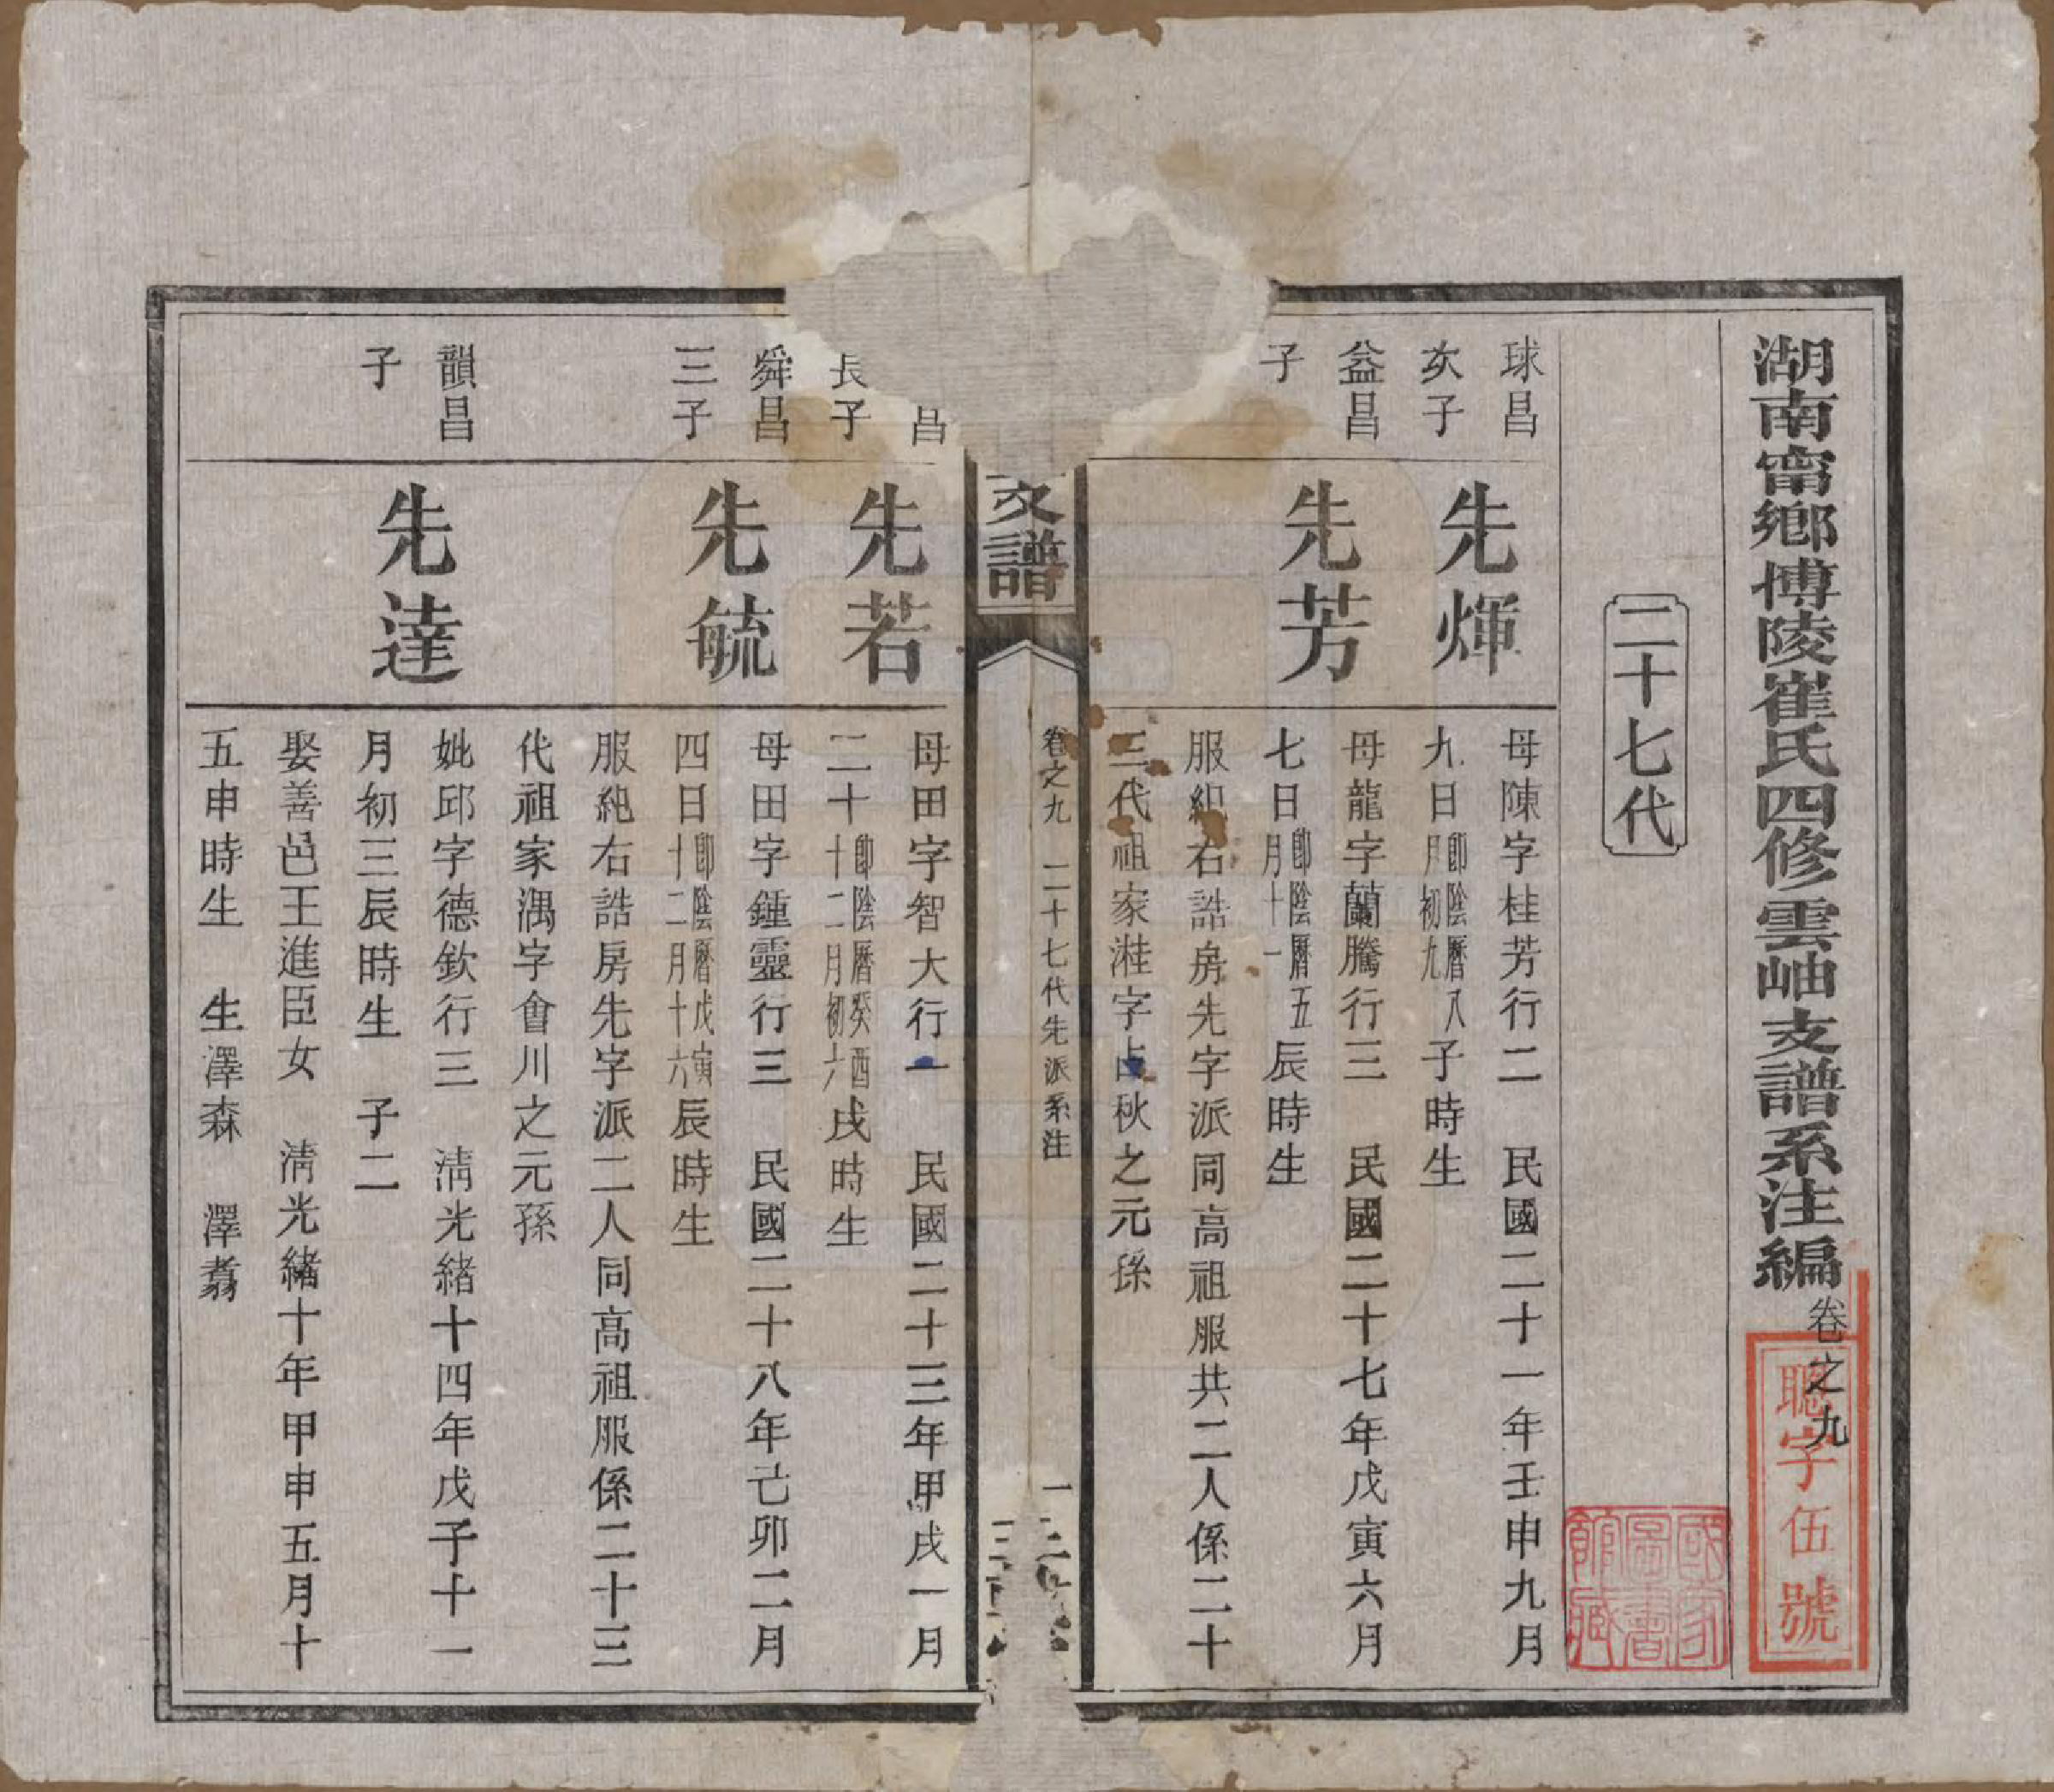 湖南甯鄉博陵崔氏四修雲岫支譜系注編卷之九
聰字伍號
國家圖書館藏
二十七代
球昌
次子
先煇
母陳字桂芳行二 民國二十一年壬申九月
九日卽陰曆八月初九子時生
益昌
子
先芳
母龍字蘭騰行三 民國二十七年戊寅六月
七日卽陰曆五月十一辰時生
服純右誥房先字派同高祖服共二人係二十
三代祖家溎字占秋之元孫
支譜
卷之九 二十七代先派系注
一
昌
長子
先若
母田字智大行一 民國二十三年甲戌一月
二十卽陰曆癸酉十二月初六戌時生
舜昌
三子
先毓
母田字鍾靈行三 民國二十八年己卯二月
四日卽陰曆戊寅十二月十六辰時生
服純右誥房先字派二人同高祖服係二十三
代祖家湡字會川之元孫
韻昌
子
先達
妣邱字德欽行三 淸光緖十四年戊子十一
月初三辰時生 子二
娶善邑王進臣女 淸光緖十年甲申五月十
五申時生 生澤森 澤翥